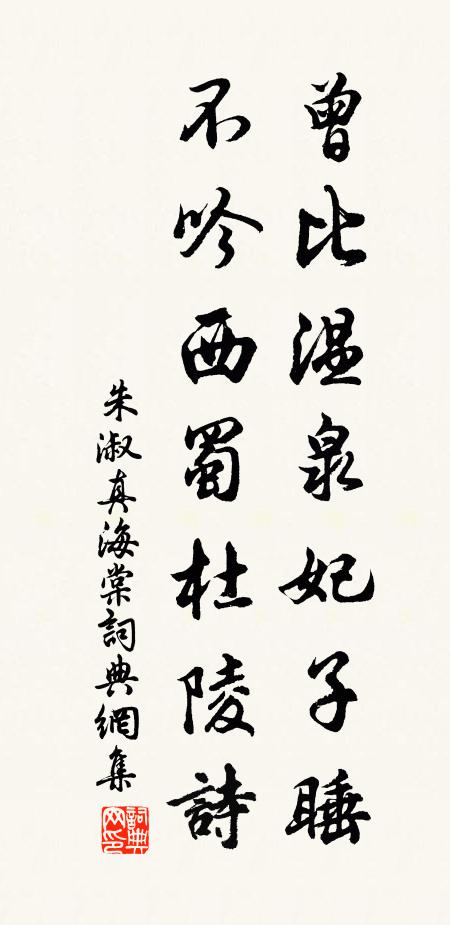 曾比温泉妃子睡
不吟西蜀杜陵詩
朱淑真海棠詞典網集
詞典
网印